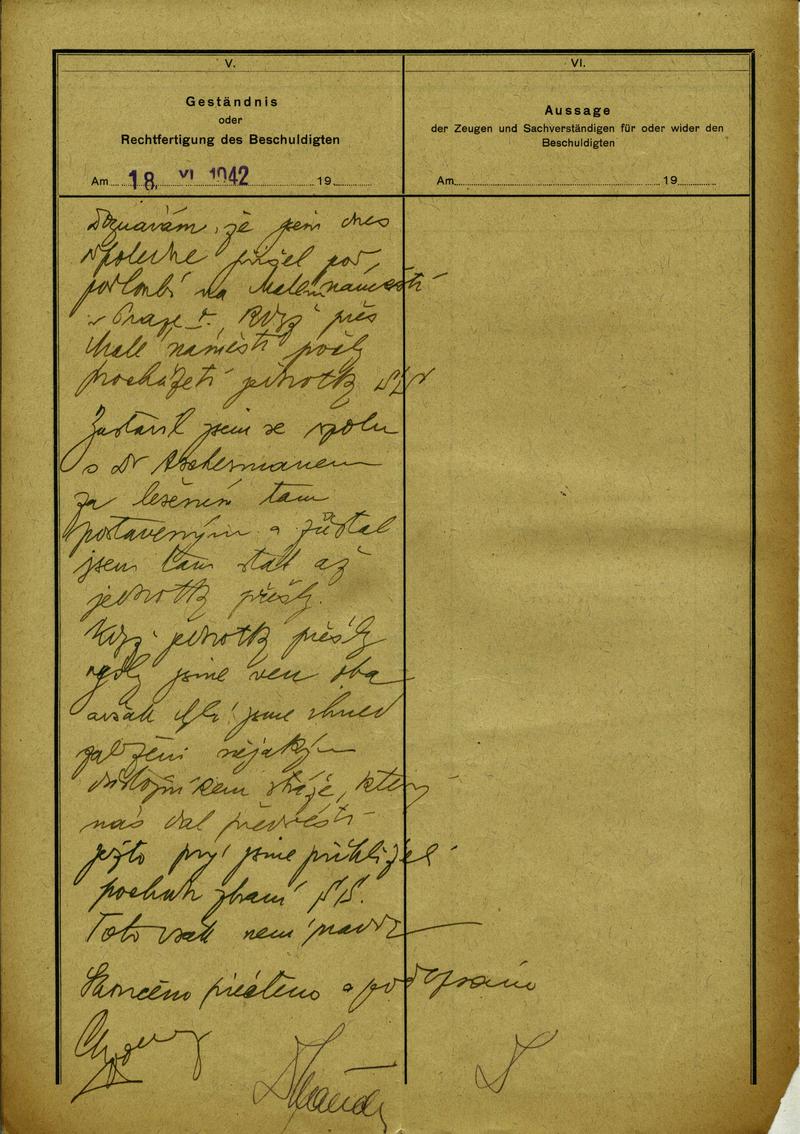 V.
Geständnis
oder
Rechtfertigung des Beschuldigten
Am 18. VI. 1942 19
VI.
Aussage
der Zeugen und Sachverständigen für oder wider den
Beschuldigten
Am 19
Doznávám, že jsem dnes
odpoledne přišel pod
podloubí na Malém náměstí
v Praze I., když přes
Malé náměstí počly
procházeti jednotky
Zastavil jsem se spolu
s Dr Aschermanem
za lešením tam
postaveným a zůstal
jsem tam stát až
jednotky přešly.
Když jednotky přešly
jsme ven oba
avšak byli jsme ihned
zajištěni nějakým
důstojníkem stráže, který
nás dal předvésti
ježto prý jsme přihlíželi
pochodu zbraní SS.
Toto však není pravda
Skončeno přečteno a podepsáno